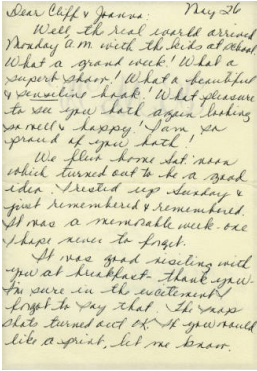 May 26
Dear Cliff & Joanna:
Well, the real world arrived
Monday a.m. with the kids at school.
What a grand week! What a
superb show! What a beautiful
& sensitive book! What pleasure
to see you both again looking
so well & happy! I am so
proud of you both!
We flew home Sat. noon
which turned out to be a good
idea. I rested up Sunday &
just remembered & remembered.
It was a memorable week - one
I hope never to forget.
It was good visiting with
you at breakfast - thank you -
I'm sure in the excitement I
forgot to say that. The snap
shots turned out OK. If you would
like a print, let me know.